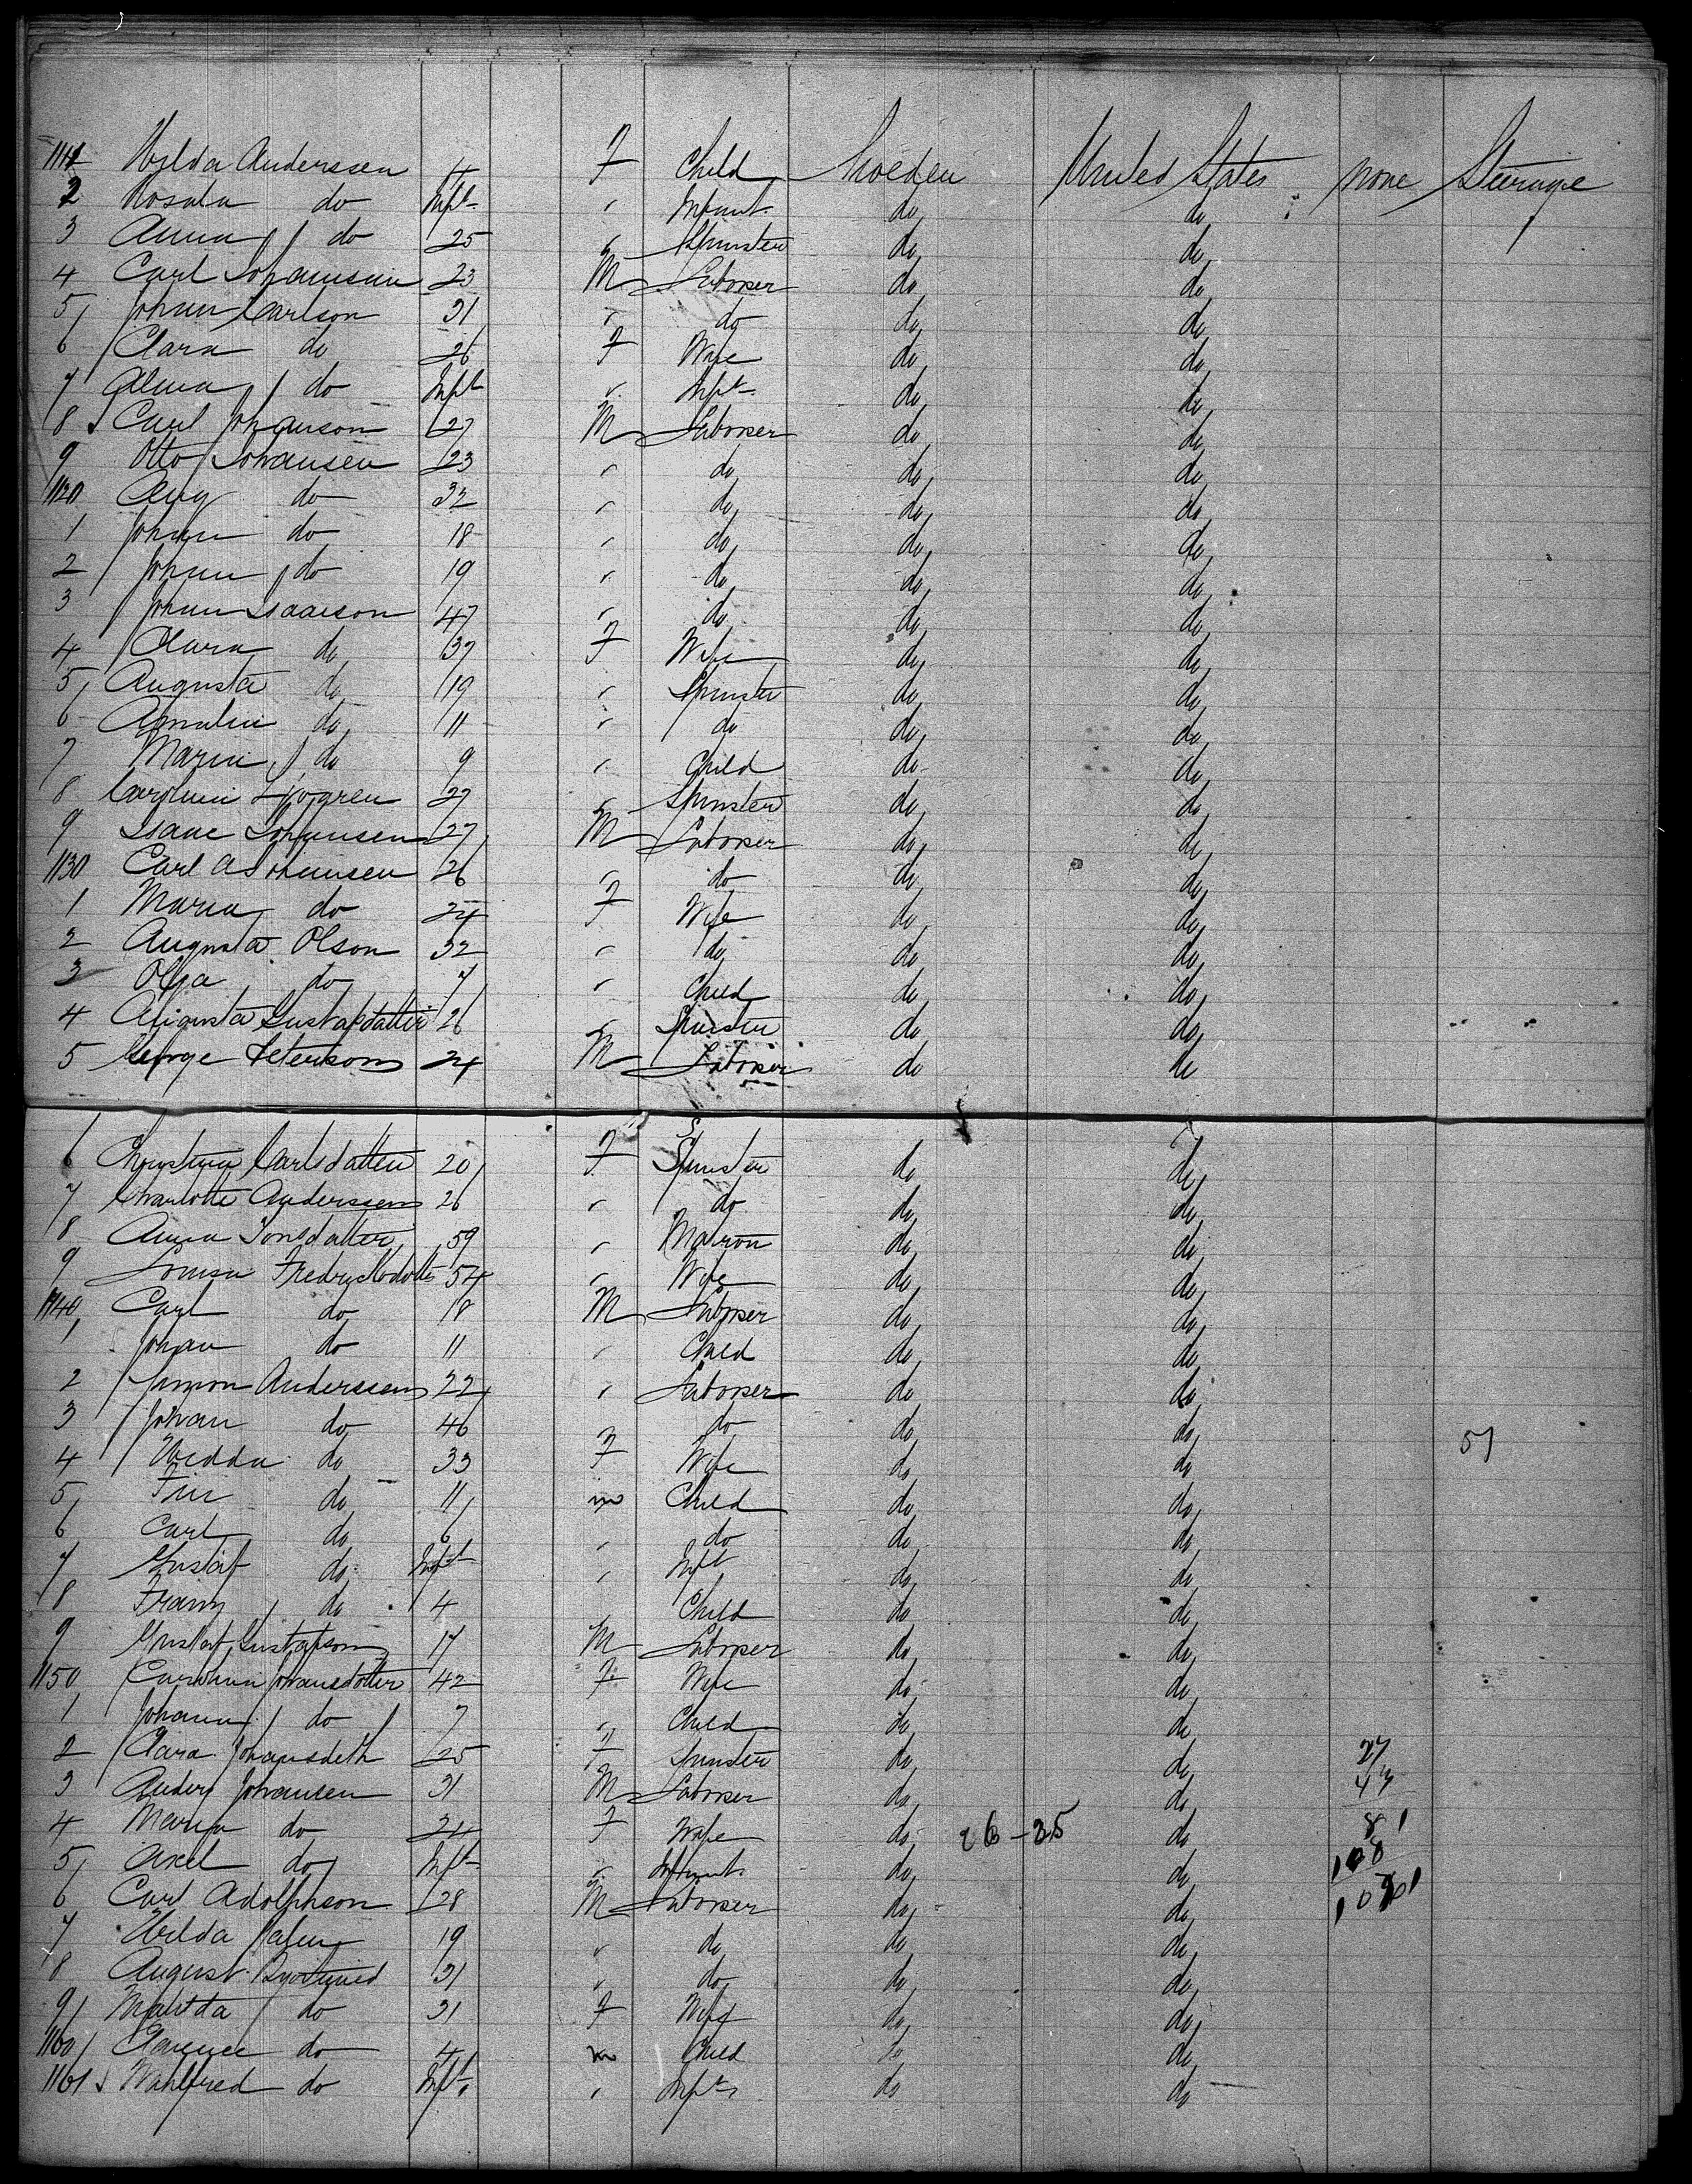 1111 Hilda Anderssen 4 F Child Sweden United States none Steerage
2 Rosala do Inft " Infant do do
3 Anna do 25 " Spinster do do
4 Carl Johanssen 23 M Laborer do do
5 Johan Carlson 31 " do do do
6 Clara do 26 F Wife do do
7 Alma do Inft " Inft do do
8 Carl Johanson 27 M Laborer do do
9 Otto Johansen 23 " do do do
1120 Aug do 32 " do do do
1 Johan do 18 " do do do
2 Johan do 19 " do do do
3 Johan Isaacson 47 " do do do
4 Clara do 37 F Wife do do
5 Augusta do 19 " Spinster do do
6 Amalia do 11 " do do do
7 Maria do 9 " Child do do
8 Carolina 27 " Spinster do do
9 Isaac Johansen 27 M Laborer do do
1130 Carl A Johansen 26 " do do do
1 Maria do 24 F Wife do do
2 Augusta Olson 32 " do do do
3 Olga do 7 " Child do do
4 Augusta Gustafdatter 26 " Spinster do do
5 George Peterson 24 M Laborer do do
6 Christina Carlsdatter 20 F Spinster do do
7 Charlotte Anderssen 26 " do do do
8 Anna Jonsdatter 59 " Matron do do
9 Louisa 54 " Wife do do
1140 Carl do 18 M Laborer do do
1 Johan do 11 " Child do do
2 Anderssen 22 " Laborer do do
3 Johan do 46 do do do
4 Hedda do 33 F Wife do do 51
5 do 11 m Child do do
6 Carl do 6 " do do do
7 Gustaf do Inft " Inft do do
8 Franz do 4 Child do do
9 Gustaf Gustafson 17 M Laborer do do
1150 Carolina Johansdotter 42 F Wife do do
1 Johann do 7 " Child do do
2 Clara Johansdetk 25 F Spinster do do 27
3 Anders Johansen 31 M Laborer do do 43
4 Maria do 24 F Wife do 26-35 do 81
5 Axel do Inft " Infant do do 108
6 Carl Adolphson 28 M Laborer do do
7 Hilda 19 " do do do
8 August 31 " do do do
9 Matilda do 31 F Wife do do
1160 Clarence do 4 m Child do do
1161 Wahlfred do Inft " Inft do do